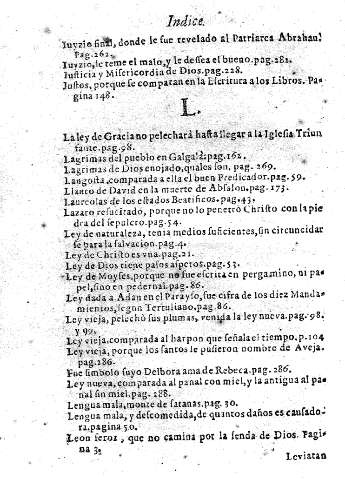 Indice.
Iuyzio final, donde le fue revelado al Patriarca Abrahan!
Pag.262.
Iuyzio, le teme el malo, y le dessea el bueno.pag.282.
Iusticia y Misericordia de Dios.pag.228.
Iustos, porque se comparan en la Escritura a los Libros. Pa-
gina 148.
L.
La ley de Gracia no pelecharà hasta llegar a la Iglesia Triun
fante.pag.98.
Lagrimas del pueblo en Galgalà.pag.162.
Lagrimas de Dios enojado, quales son. pag. 269.
Langosta, comparada a ella el buen Predicador.pag.59.
Llanto de David en la muerte de Absalon.pag.173.
Laureolas de los estados Beatificos.pag.43.
Lazaro resucitado, porque no lo penetrò Christo con la pie
dra del sepulcro.pag.54.
Ley de naturaleza, tenia medios suficientes, sin circuncidar
se para la salvacion.pag.4.
Ley de Christo es vna.pag.21.
Ley de Dios tiene passos asperos.pag.53.
Ley de Moyses, porque no fue escrita en pergamino, ni pa-
pel, sino en pedernal.pag.86.
Ley dada a Adan en el Parayso, fue cifra de los diez Manda-
mientos, segun Tertuliano.pag.86.
Ley vieja, pelechò sus plumas, venida la ley nueva.pag.98.
y 99.
Ley vieja, comparada al harpon que señala el tiempo.p.104
Ley vieja, porque los santos le pusieron nombre de Aveja.
pag.286.
Fue simbolo suyo Delbora ama de Rebeca.pag.286.
Ley nueva, comparada al panal con miel, y la antigua al pa-
nal sin miel.pag.288.
Lengua mala, monte de satanas.pag.30.
Lengua mala, y descomedida, de quantos daños es causado-
ra.pagina 50.
Leon feroz, que no camina por la senda de Dios. Pagi-
na 3.
Leviatan